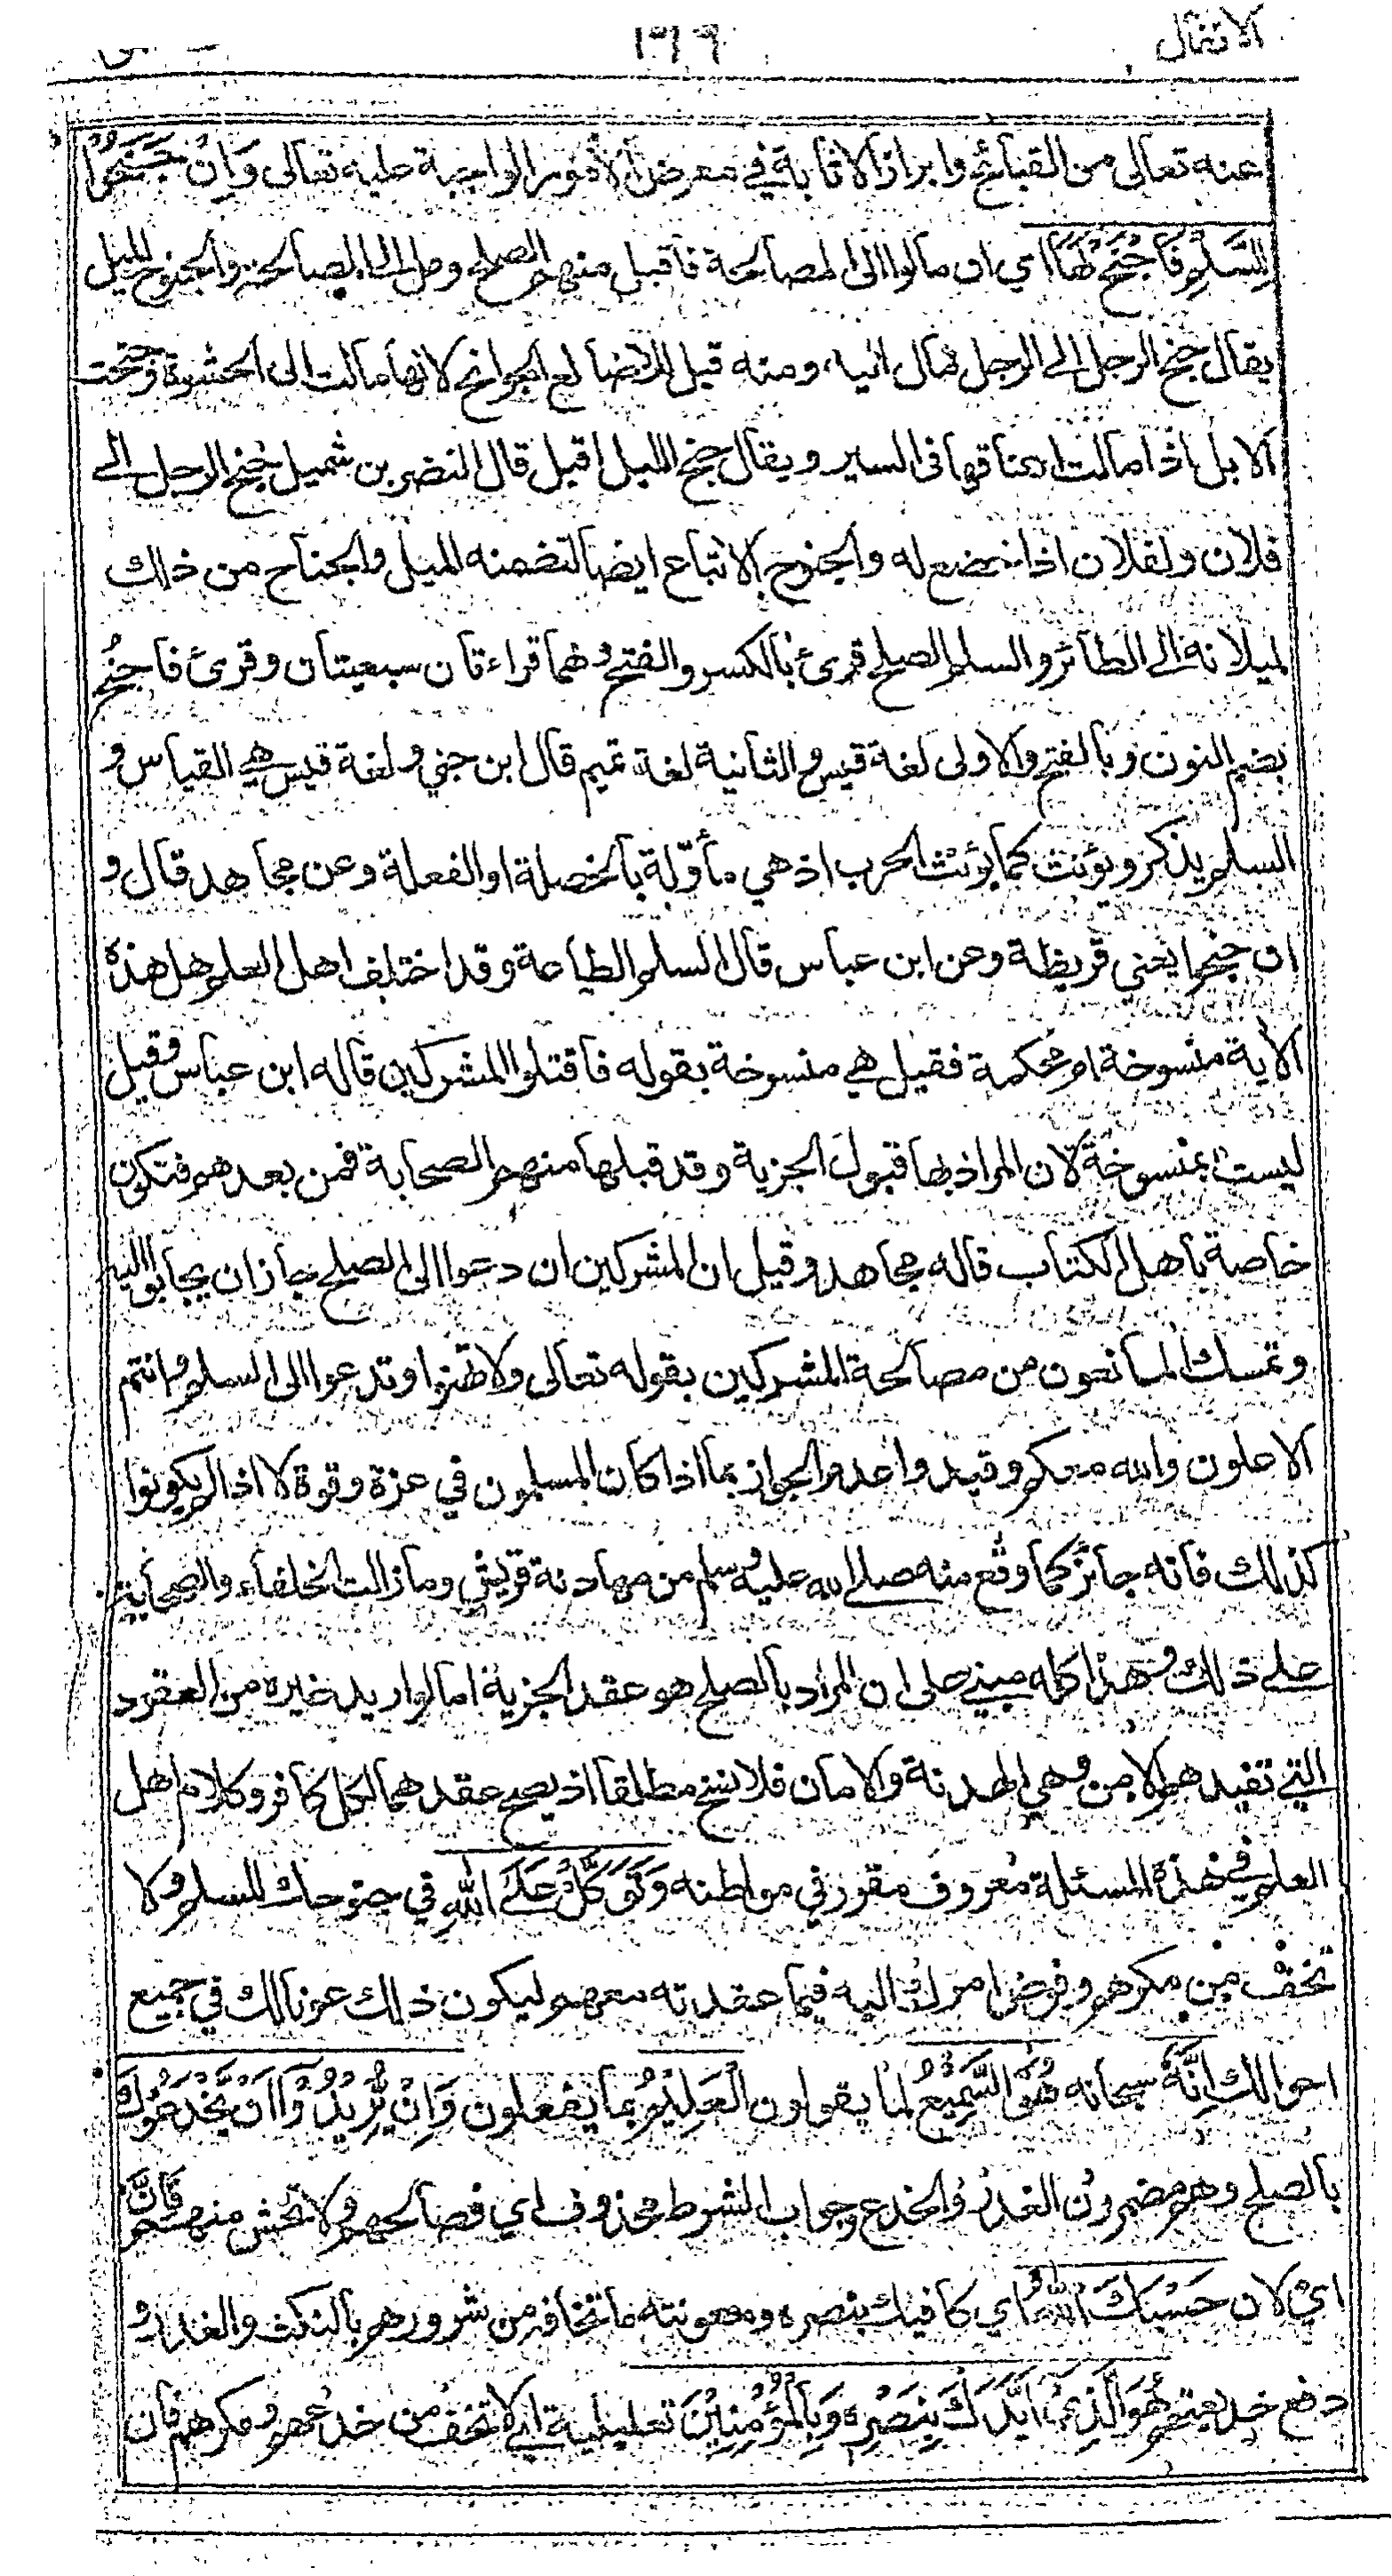 الانفال
١٦٩
عنه تعالى من القبائح وابراز الاثابة في معرض الامور الواجبة عليه تعالى وَاِنْ جَنَحُوْا
لِلسَّلْمِ فَاجْنَحْ لَهَا اي ان مالوا الى المصالحة فاقبل منهم الصلح ومل الى المصالحة والجنوح الميل
يقال جنح الرجل الى الرجل مال اليه ومنه قيل للاضالع الجوانح لانها مالت الى الحشوة وجنحت
الابل اذا مالت اعناقها في السير ويقال جنح الليل اقبل قال النضر بن شميل جنح الرجل الى
فلان ولفلان اذا خضع له والجنوح الاتباع ايضا لتضمنه الميل والجناح من ذلك
لميلانه الى الطائر والسلم الصلح قرئ بالكسر والفتح وهما قراءتان سبعيتان وقرئ فاجنُح
بضم النون وبالفتح والاولى لغة قيس والثانية لغة تميم قال ابن جني ولغة قيس هي القياس و
السلم يذكر ويؤنث كما يؤنث الحرب اذ هي مأوّلة بالخصلة او الفعلة وعن مجاهد قال و
ان جنحوا يعني قريظة وعن ابن عباس قال السلم الطاعة وقد اختلف اهل العلم هل هذه
الاية منسوخة ام محكمة فقيل هي منسوخة بقوله فاقتلوا المشركين قاله ابن عباس وقيل
ليست بمنسوخة لان المراد بها قبول الجزية وقد قبلها منهم الصحابة فمن بعدهم فتكون
خاصة باهل الكتاب قاله مجاهد وقيل ان المشركين ان دعوا الى الصلح جاز ان يجابوا اليه
وتمسك المانعون من مصالحة المشركين بقوله تعالى ولا تهنوا وتدعوا الى السلم وانتم
الاعلون والله معكم وقيد واعدم الجواز بما اذا كان المسلمون في عزة وقوة لا اذا لم يكونوا
كذلك فانه جائز كما وقع منه صلى الله عليه وسلم من مهادنة قريش وما زالت الخلفاء والصحابة
على ذلك وهذا كله مبني على ان المراد بالصلح هو عقد الجزية اما لو اريد غيره من العقود
التي تفيدهم الامن وهي الهدنة والامان فلا نسخ مطلقا اذ يصح عقدهما لكل كافر وكلام اهل
العلم في هذه المسئلة معروف مقرر في مواطنه وَتَوَكَّلْ عَلَى اللّٰهِ في جنوحك للسلم ولا
تخف من مكرهم وفوض امرك اليه فيما عقدته معهم ليكون ذلك عونا لك في جميع
احوالك اِنَّهٗ سبحانه هُوَ السَّمِيْعُ لما يقولون الْعَلِيْمُ بما يفعلون وَاِنْ يُّرِيْدُوْا اَنْ يَّخْدَعُوْكَ
بالصلح وهم مضمرون الغدر والخدع وجواب الشرط محذوف اي فصالحهم ولا تخش منهم فَاِنَّ
اي لان حَسْبَكَ اللّٰهُ اي كافيك بنصره ومعونته ما تخافه من شرورهم بالنكث والغدر و
دفع خديعتهم هُوَ الَّذِيْ اَيَّدَكَ بِنَصْرِهٖ وَبِالْمُؤْمِنِيْنَ تعليلية اي لا تخف من خدعهم ومكرهم فان